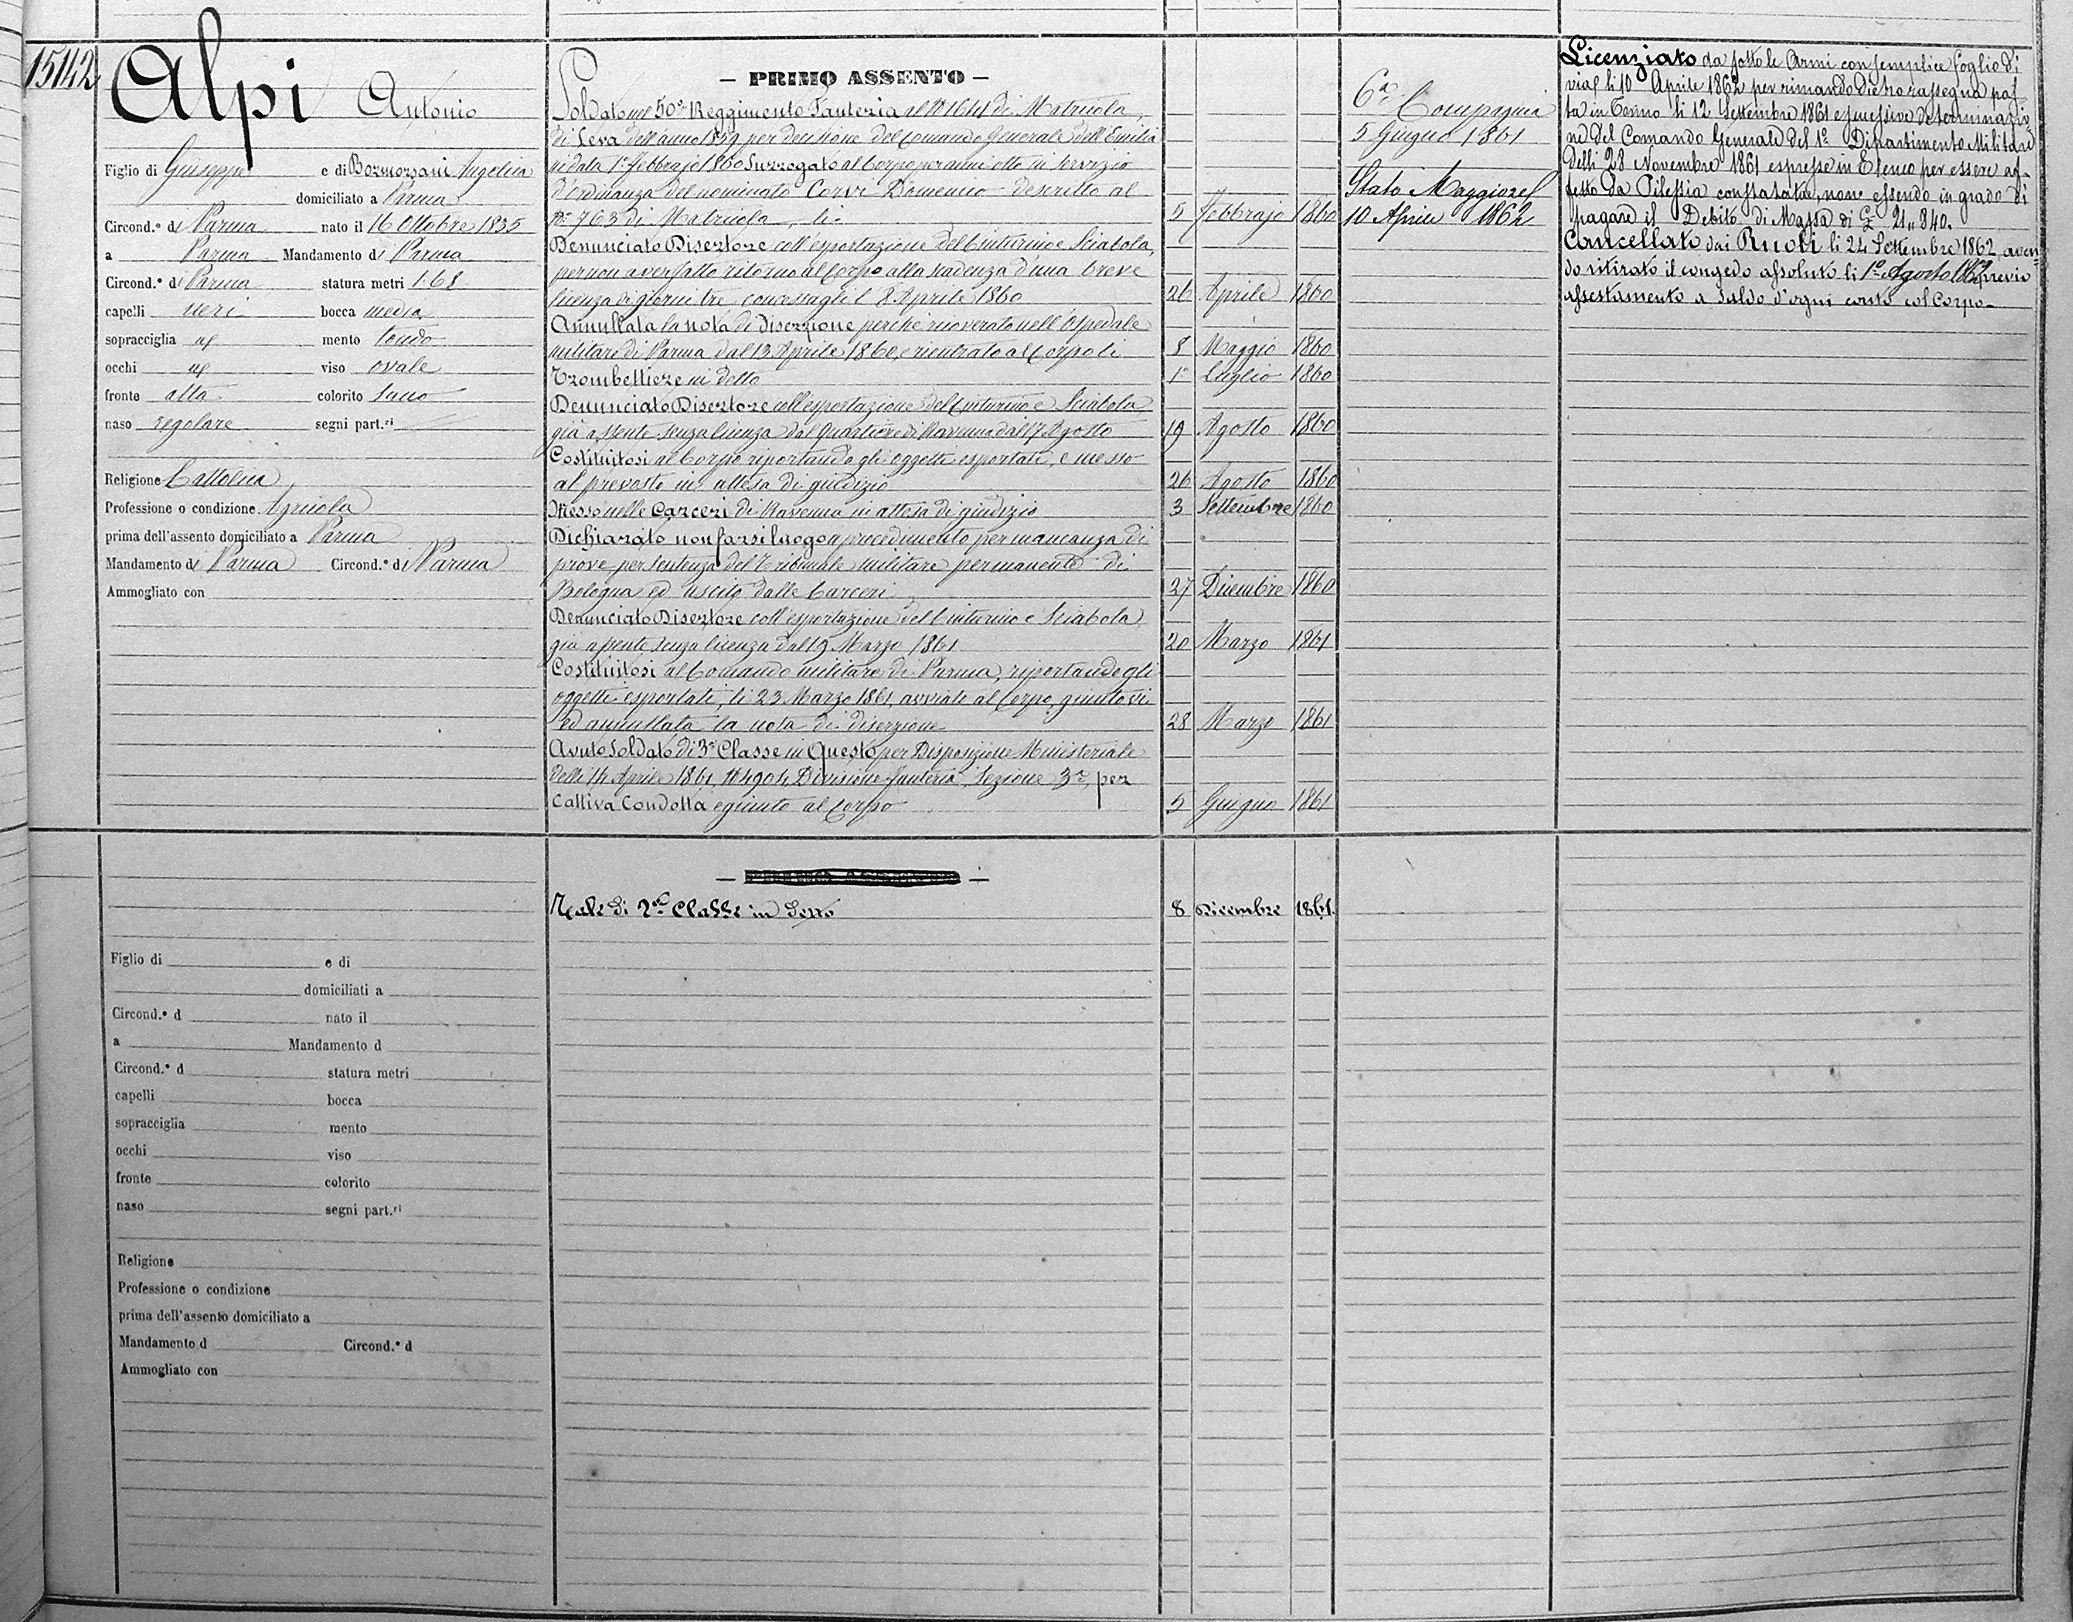 15142
Alpi Antonio
Figlio di Giuseppe e di Bormorsani Angelica
domiciliato a Parma
Circond.º di Parma nato il 16 Ottobre 1835
a Parma Mandamento di Parma
Circond.º di Parma statura metri 1.68
capelli neri bocca media
sopracciglia mento tondo
occhi viso ovale
fronte alta colorito
naso regolare segni part.ri
Religione Cattolica
Professione o condizione Agricola
prima dell'assento domiciliato a Parma
Mandamento di Parma Circond.º di Parma
Ammogliato con
— PRIMO ASSENTO —
Soldato nel 50º Reggimento Fanteria al Nº 1644 di Matricola,
di Leva dell'anno 1859 per decisione del Comando Generale dell'Emilia
in data 1º febbrajo 1860 Surrogato al Corpo per anni otto in servizio
d'ordinanza del nominato Corvi Domenico descritto al
Nº 763 di Matricola, li 5 febbrajo 1860
Denunciato Disertore coll'esportazione del Cinturino e Sciabola,
per non aver fatto ritorno al Corpo alla scadenza d'una breve
licenza di giorni tre concessagli l'8 Aprile 1860 26 Aprile 1860
Annullata la nota di diserzione perchè ricoverato nell'Ospedale
militare di Parma dal 13 Aprile 1860, e rientrato al Corpo li 8 Maggio 1860
Trombettiere in detto 1º Luglio 1860
Denunciato Disertore coll'esportazione del Cinturino e Sciabola,
già assente senza licenza dal Quartiere di Ravenna dal 17 Agosto 19 Agosto 1860
Costituitosi al Corpo riportando gli oggetti esportati, e messo
al prevosto in attesa di giudizio 26 Agosto 1860
Messo nelle Carceri di Ravenna in attesa di giudizio 3 Settembre 1860
Dichiarato non farsi luogo a procedimento per mancanza di
prove per sentenza del Tribunale militare permanente di
Bologna ed uscito dalle Carceri 27 Dicembre 1860
Denunciato Disertore coll'esportazione del Cinturino e Sciabola
già assente senza licenza dal 19 Marzo 1861 20 Marzo 1861
Costituitosi al Comando militare di Parma, riportando gli
oggetti esportati, li 23 Marzo 1861, avviato al Corpo, giuntovi
ed annullata la nota di diserzione 28 Marzo 1861
Avuto Soldato di 3ª Classe in Questo per Disposizione Ministeriale
delli 14 Aprile 1861, Nº 4904, Divisione fanteria, Sezione 3ª, per
Cattiva Condotta e giunto al Corpo 5 Giugno 1861
6ª Compagnia
5 Giugno 1861
Stato Maggiore
10 Aprile 1862
Licenziato da sotto le Armi con semplice foglio di
via li 10 Aprile 1862 per rimando dietro rassegna pas
ta in Torino li 12 Settembre 1861 e successive determinazio
ne del Comando Generale del 1º Dipartimento Militare
delli 28 Novembre 1861 espresse in Elenco per essere af
fetto da Pilessia constatata, non essendo in grado di
pagare il Debito di Massa di 21.840.
Cancellato dai Ruoli li 24 Settembre 1862 aven
do ritirato il congedo assoluto li 1º Agosto 1862 previo
assestamento a saldo d'ogni conto col Corpo.
Tale di 2ª Classe in Detto 8 Dicembre 1861.
Figlio di e di
domiciliati a
Circond.º d nato il
a Mandamento d
Circond.º d statura metri
capelli bocca
sopracciglia mento
occhi viso
fronte colorito
naso segni part.ri
Religione
Professione o condizione
prima dell'assento domiciliato a
Mandamento d Circond.º d
Ammogliato con